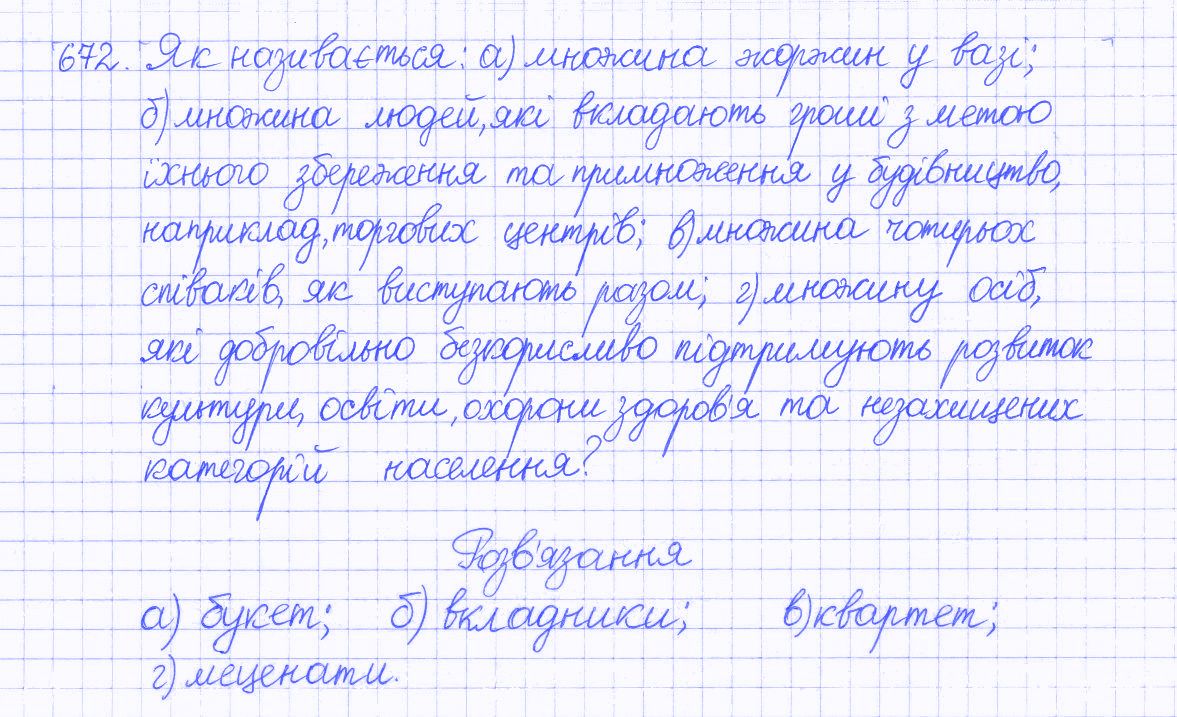 672. Як називається: а) множина жоржин у вазі;
б) множина людей, які вкладають гроші з метою
їхнього збереження та примноження у будівництво,
наприклад, торгових центрів; в) множина чотирьох
співаків, як виступають разом; г) множину осіб,
які добровільно безкорисливо підтримують розвиток
культури, освіти, охорони здоров'я та незахищених
категорій населення?
Розв'язання
а) букет; б) вкладники; в) квартет;
г) меценати.